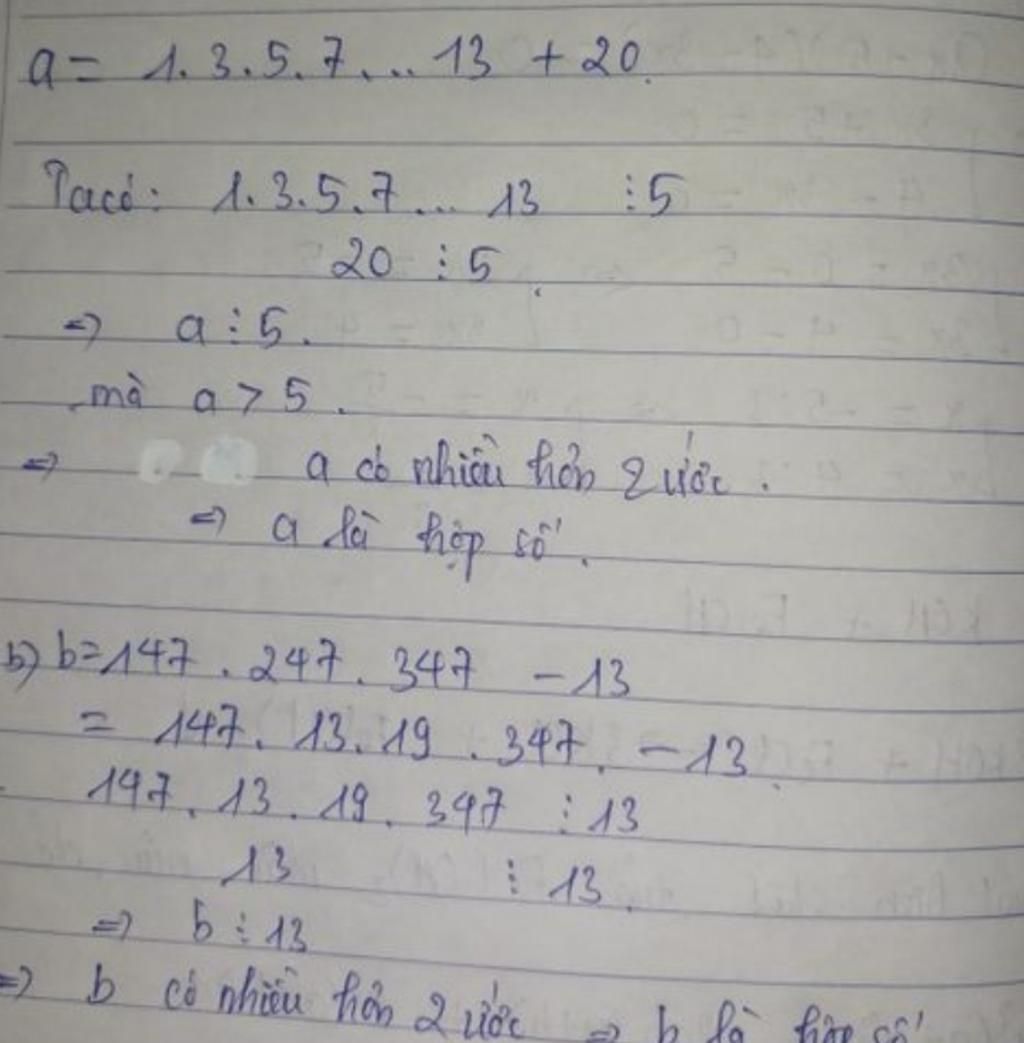 a = 1.3.5.7... 13 + 20.
Ta có: 1.3.5.7... 13 ⋮ 5
20 ⋮ 5.
=> a ⋮ 5.
mà a > 5.
=> a có nhiều hơn 2 ước.
=> a là hợp số.
b) b = 147 . 247 . 347 - 13
= 147 . 13 . 19 . 347 . - 13
147 . 13 . 19 . 347 ⋮ 13
13 ⋮ 13.
=> b ⋮ 13
=> b có nhiều hơn 2 ước => b là hợp số